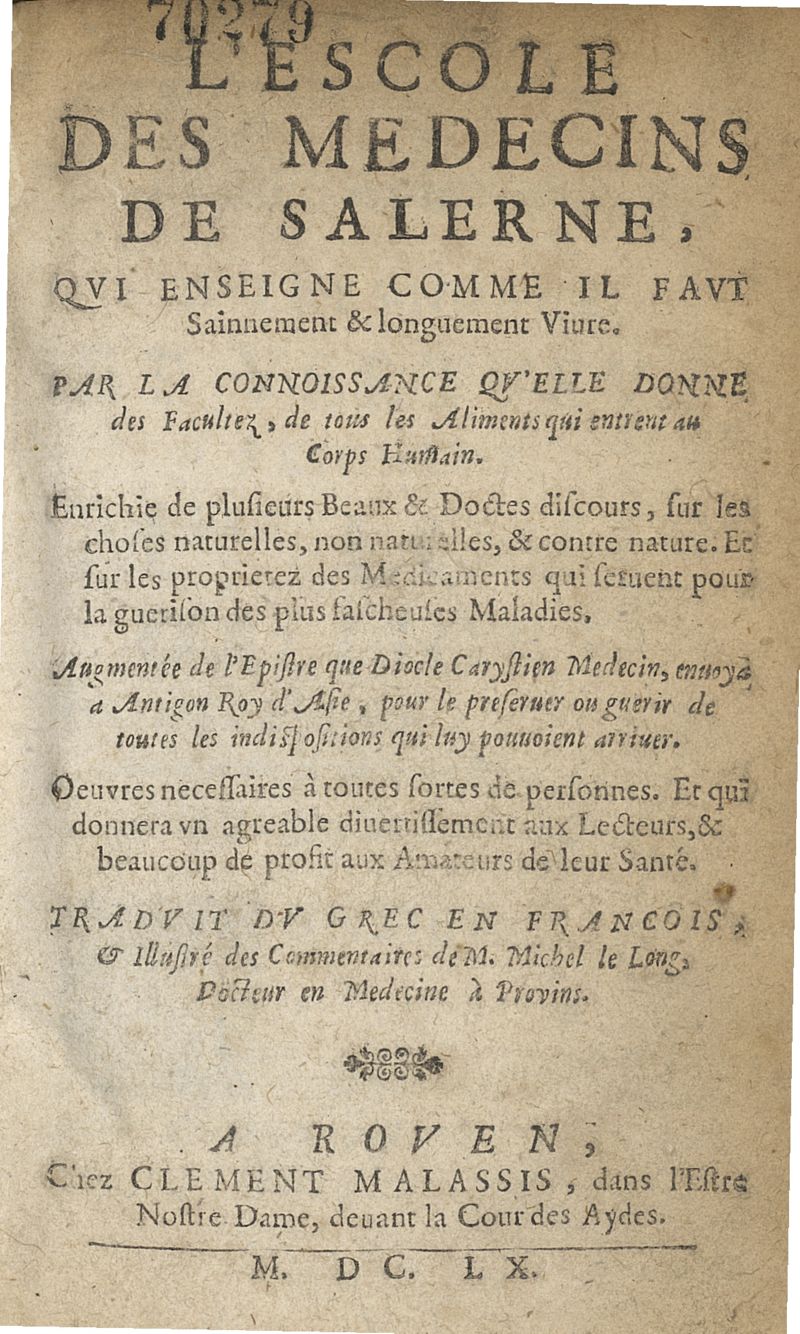 70279
L'ESCOLE
DES MEDECINS
DE SALERNE,
QVI ENSEIGNE COMME IL FAVT
Sainnement & longuement Viure.
PAR LA CONNOISSANCE QV'ELLE DONNE
des Facultez, de tous les Aliments qui entrent au
Corps Humain.
Enrichie de plusieurs Beaux & Doctes discours, sur les
choses naturelles, non naturelles, & contre nature. Et
sur les proprietez des Medicaments qui seruent pour
la guerison des plus fascheuses Maladies,
Augmentée de l'Epistre que Diocle Carystien Medecin, enuoya
a Antigon Roy d'Asie, pour le preseruer ou guerir de
toutes les indispositions qui luy pouuoient arriuer.
Oeuvres necessaires à toutes sortes de personnes. Et qui
donnera vn agreable diuertissement aux Lecteurs, &
beaucoup de profit aux Amateurs de leur Santé.
TRADVIT DV GREC EN FRANCOIS,
& Illustré des Commentaires de M. Michel le Long,
Docteur en Medecine à Provins.
A ROVEN,
Chez CLEMENT MALASSIS, dans l'Estre
Nostre Dame, deuant la Cour des Aydes.
M. DC. LX.